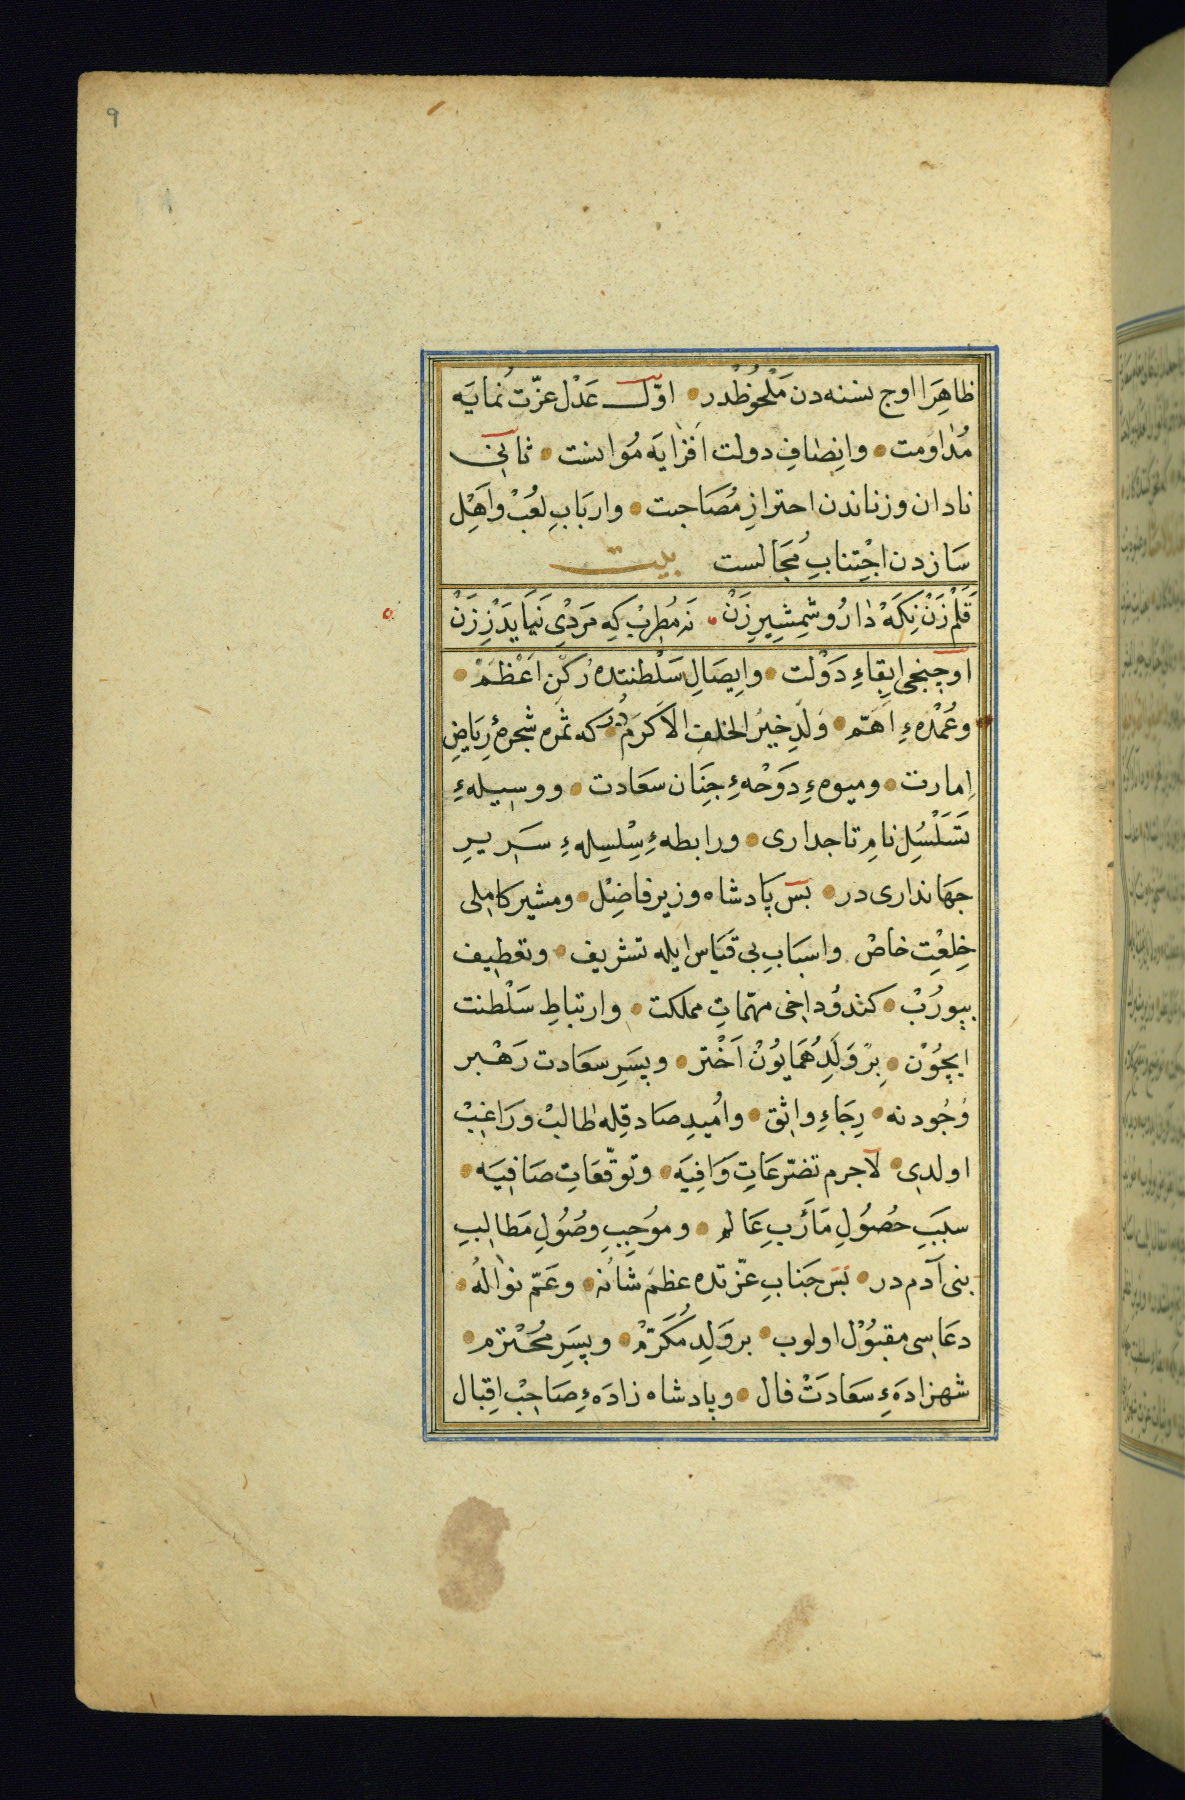 ٩
ظاهِرَا اوج نسنه دن مَلْحُوظْدر اوّل عَدْل عزّت نُمايَه
مُداوَمت وانِصافِ دولت اَفزايَه مُوانست ثاني
نادان وزناندن احترازِ مُصَاحبت واربَابِ لعُبْ واَهْلِ
سَازدن اجْتِنابِ مُجَالست بيت
قَلَمْ زَنْ نِكَهْ دٰار وُ شمِشيِرِزَنْ نَه مُطِربْ كِه مَردْيِ نَيَايَدْ زِزَنْ
اوچنجى ابِقاءِ دَوْلت وايِصَالِ سَلْطنتده رُكنِ اَعْظَمْ
وعُمْدهءِ اَهَمّ وَلَدِ خيرُ الخلفِ الاَكرَم دُر كه ثمره شجرهٔ رِيَاضِ
اِمارت وميوهءِ دَوْحهءِ جِنَان سعَادت ووسيلهءِ
تَسَلْسُلِ نامِ تاجدارى ورابطهءِ سِلْسِلهءِ سَريرِ
جهَاندارى در بسَ پَادشاه وزير فاضِل ومشير كامِلى
خِلعْتِ خاصْ واسبَابِ بى قيَاس ايله تشريف وتعطيف
بيورُبْ كندوُ داخى مهمّاتِ مملكت وارتباطِ سَلْطنت
ايچوُنْ بِرْ وَلَدِ هُمَايوُنْ اَخْتر وپسَرِ سعَادت رَهْبر
وُجودنه رِجَاءِ واثِق واُميدِ صَادقِله طالبْ ورَاغِبْ
اولدى لاَجرم تضرّعَاتِ وَافِيَه وتوقّعَاتِ صَافِيَه
سبَبِ حصُولِ مَآرِبِ عَالم وموُجِبِ وصُولِ مَطالِبِ
بنى آدم در بسَ جَنابِ عزّتده عظمَ شانُه وعَمّ نوٰالهُ
دعَاسى مقبوُل اولوب بر وَلَدِ مُكَرَّمْ وپسَرِ مُحْترم
شهزادَهءِ سَعَادَتْ فال وپادشاه زادَهءِ صَاحِبْ اِقبال